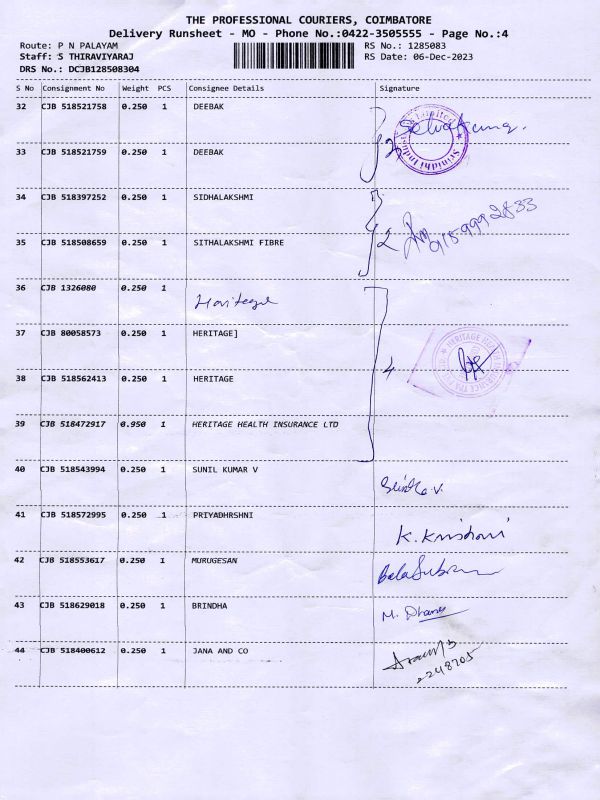 THE PROFESSIONAL COURIERS, COIMBATORE
Delivery Runsheet - MO - Phone No.:0422-3505555 - Page No.:4
Route: P N PALAYAM RS No.: 1285083
Staff: S THIRAVIYARAJ RS Date: 06-Dec-2023
DRS No.: DCJB128508304
S No Consignment No Weight PCS Consignee Details Signature
32 CJB 518521758 0.250 1 DEEBAK
33 CJB 518521759 0.250 1 DEEBAK 2
34 CJB 518397252 0.250 1 SIDHALAKSHMI
9159992833
35 CJB 518508659 0.250 1 SITHALAKSHMI FIBRE 2
36 CJB 1326080 0.250 1 Heritage
37 CJB 80058573 0.250 1 HERITAGE]
38 CJB 518562413 0.250 1 HERITAGE 4
HERITAGE HEALTH INSURANCE TPA PVT LTD
39 CJB 518472917 0.950 1 HERITAGE HEALTH INSURANCE LTD
40 CJB 518543994 0.250 1 SUNIL KUMAR V
41 CJB 518572995 0.250 1 PRIYADHRSHNI
42 CJB 518553617 0.250 1 MURUGESAN
43 CJB 518629018 0.250 1 BRINDHA
44 CJB 518400612 0.250 1 JANA AND CO